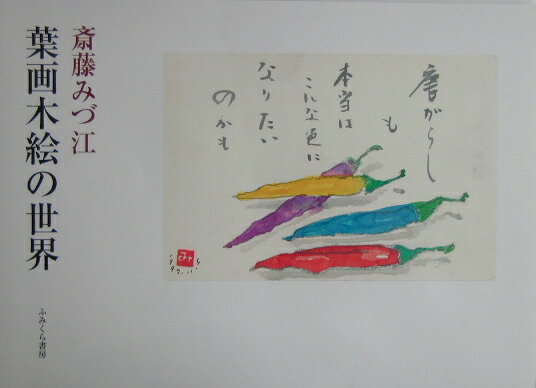 斎藤みづ江
葉画木絵の世界
ふみくら書房
唐がらし
も
本当は
こんな色に
なりたい
のかも
み